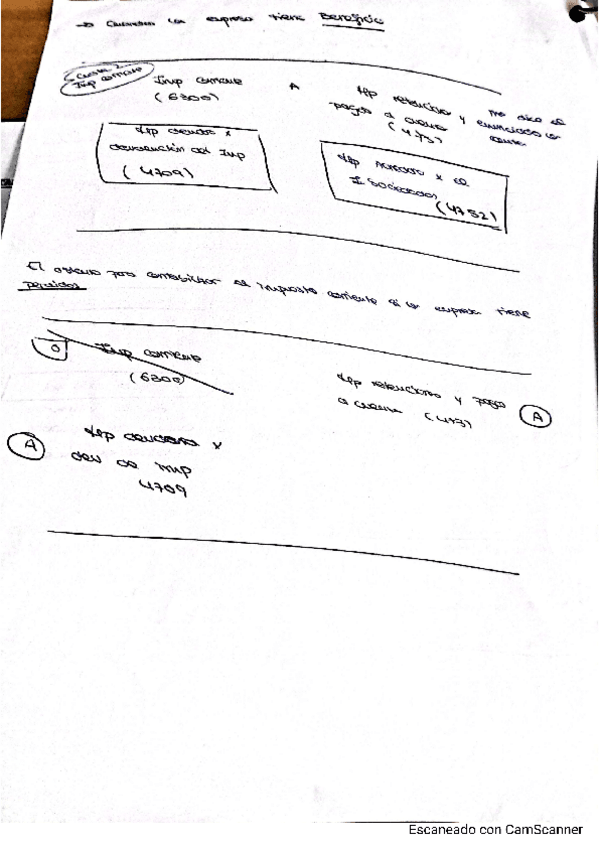 → Cuando la empresa tiene Beneficio
Cuota
Imp corriente
Imp corriente
(6300)
A
HP retenciones y
pagos a cuenta
(473)
HP deudora x
devolución del Imp
(4709)
HP Acreedora x el
I Sociedades
(4752)
El asiento para contabilizar el impuesto corriente si la empresa tiene
perdidas
0
Imp corriente
(6300)
HP retenciones y pagos
a cuenta (473)
A
A
HP deudora x
dev de imp
4709
Escaneado con CamScanner